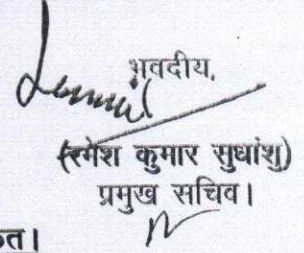 भवदीय,
(रमेश कुमार सुधांशु)
प्रमुख सचिव।